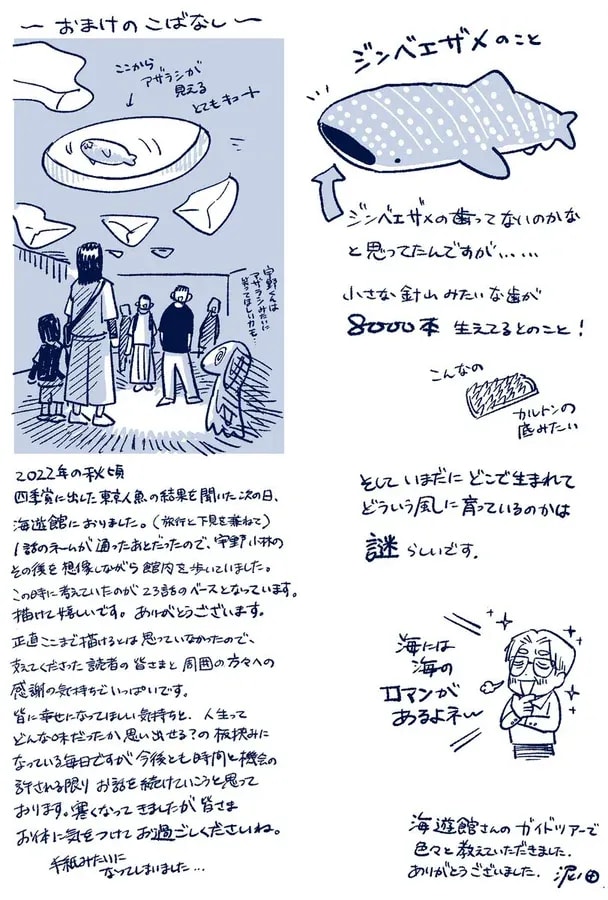 ～おまけのこばなし～
ここから
アザラシが
見える
とてもキュート
宇野くんは
アザラシみたいに
笑ってほしいカモ…
2022年の秋頃
四季賞に出した東京人魚の結果を聞いた次の日、
海遊館におりました。（旅行と下見を兼ねて）
1話のネームが通ったあとだったので、宇野小林の
その後を想像しながら館内を歩いていました。
この時に考えていたのが23話のベースとなっています。
描けて嬉しいです。ありがとうございます。
正直ここまで描けるとは思っていなかったので、
支えてくださった読者の皆さまと周囲の方々への
感謝の気持ちでいっぱいです。
皆に幸せになってほしい気持ちと、人生って
どんな味だったか思い出せる？の板挟みに
なっている毎日ですが今後とも時間と機会の
許される限りお話を続けていこうと思って
おります。寒くなってきましたが皆さま
お体に気をつけてお過ごしくださいね。
手紙みたいに
なってしまいました…
ジンベエザメのこと
ジンベエザメの歯ってないのかな
と思ってたんですが……
小さな針山みたいな歯が
8000本生えてるとのこと！
こんなの
カルトンの
底みたい
そしていまだにどこで生まれて
どういう風に育っているのかは
謎らしいです．
海には
海の
ロマンが
あるよネ～
海遊館さんのガイドツアーで
色々と教えていただきました．
ありがとうございました．